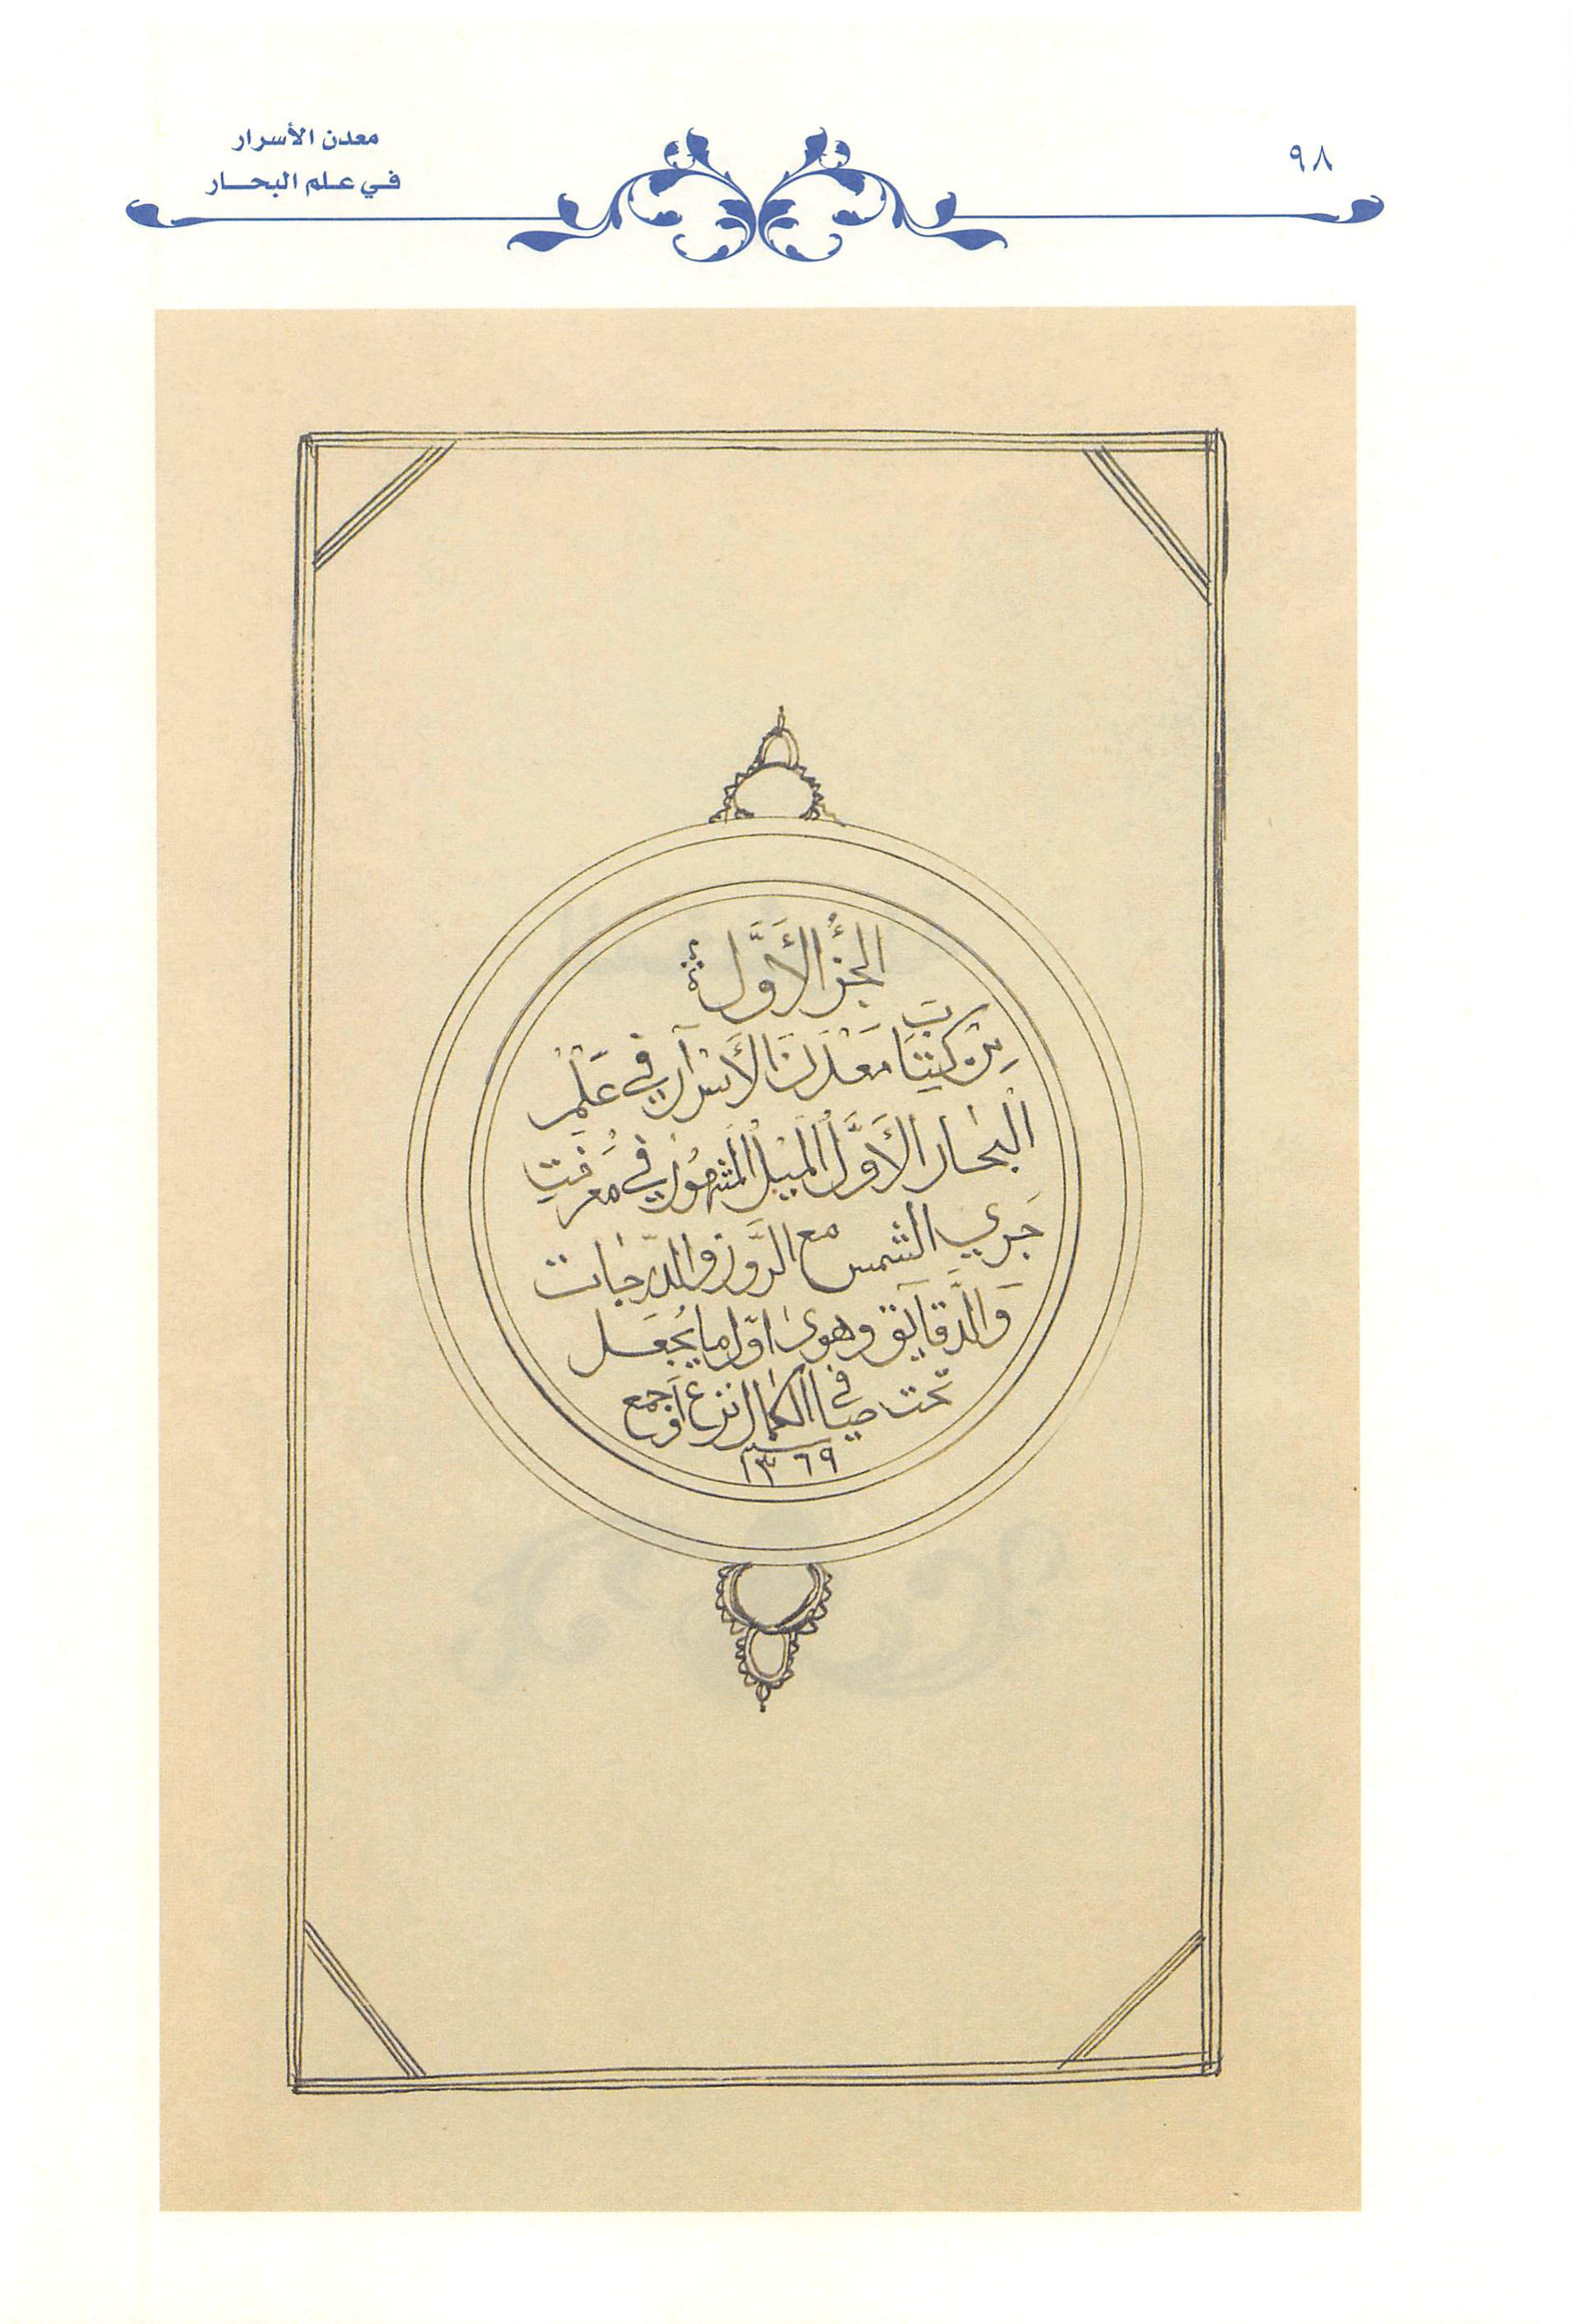 ٩٨
معدن الأسرار
في علم البحار
الجزُ الأَوَّل
مِنْ كِتَاب مَعْدَنَ الأَسْرَار في عَلْمِ
الْبحَار الأَوَّل الْمَيْل الْمَشهُور في معرفتِ
جَري الشمس مع الرَّوز والدّرجات
وَالدَّقايق وهوى اوّل ما يُجعَل
تحت صافي الكمال نزع
سنة ١٣٦٩